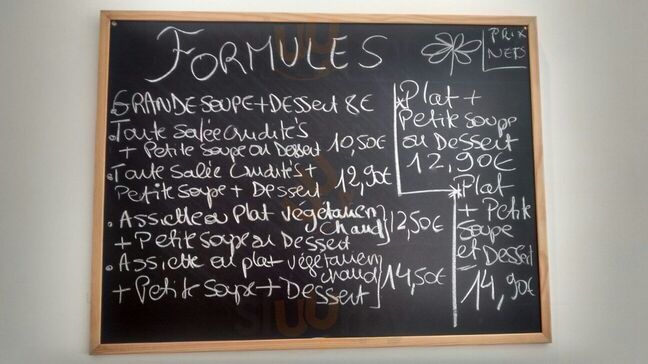 FORMULES
PRIX
NETS
. GRANDE SOUPE + DESSERT 8€
. Tarte Salée Crudités
+ Petite Soupe ou Dessert 10,50€
. Tarte Salée Crudités +
Petite Soupe + Dessert 12,90€
. Assiette ou Plat végétarien
chaud
+ Petite Soupe ou Dessert
12,50€
. Assiette ou plat végétarien
chaud
+ Petite Soupe + Dessert
14,50€
* Plat +
Petite Soupe
ou Dessert
12,90€
* Plat
+ Petite
Soupe
et Dessert
14,90€